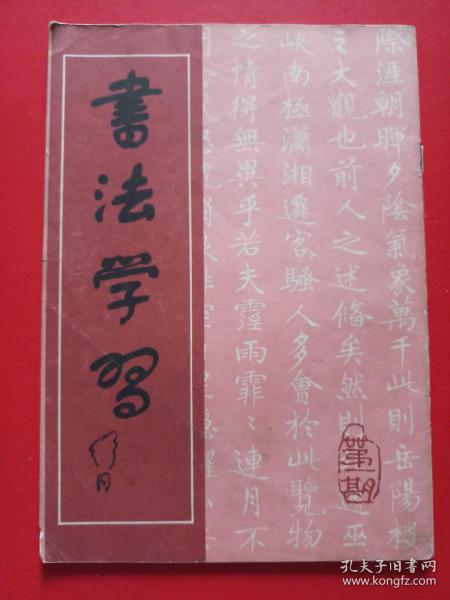 書法学習
際涯朝暉夕陰氣象萬千此則岳陽樓
之大觀也前人之述備矣然則
巫
峽南極瀟湘遷客騷人多會於此覽物
之情得無異乎若夫霪雨霏〻連月不
第一期
孔夫子旧书网
www.kongfz.com